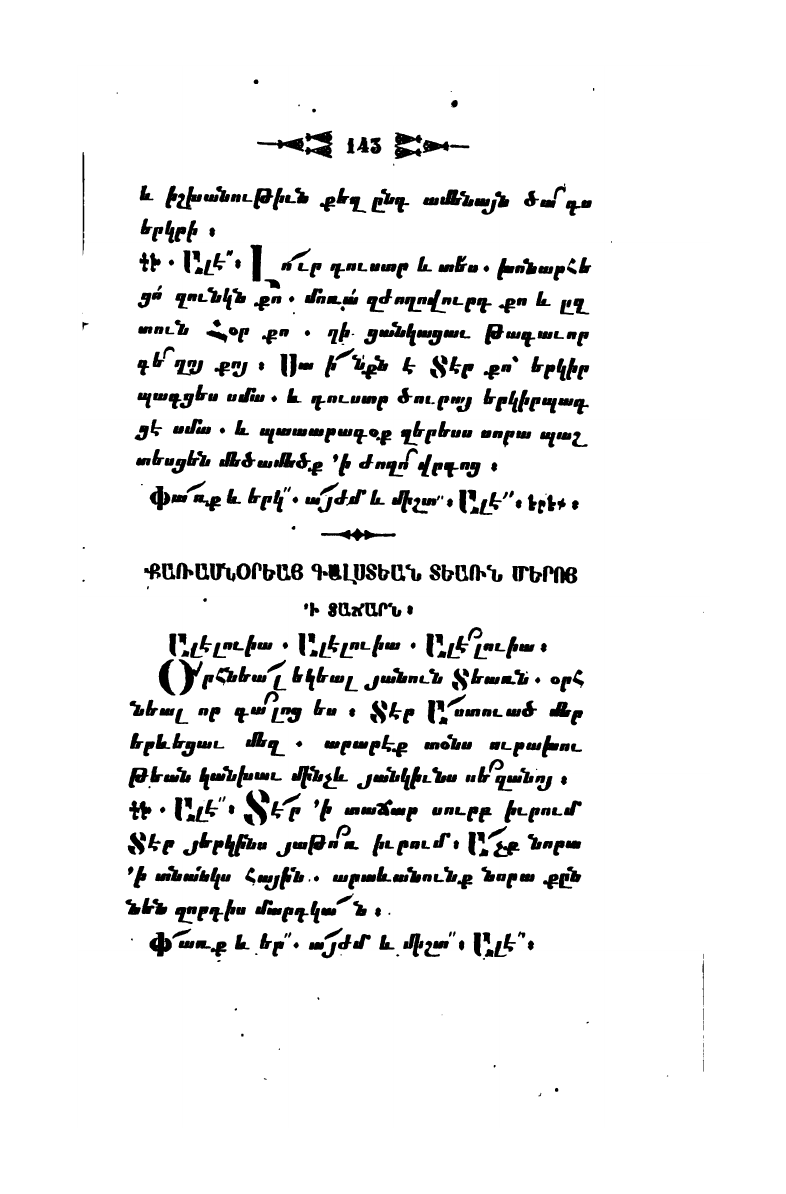 143
և իշխանութիւն քեզ ընդ ամենայն ծա՜գս
երկրի ։
ԳԻ • Ալէ՛՛։ Լո՜ւր դուստր և տես • խոնարհե
ցո՛ զունկն քո • մոռա՛ զժողովուրդ քո և ըզ
տուն Հօր քո • զի ցանկացաւ Թագաւոր
գե՜ղոյ քոյ ։ Սա ի՜նքն է Տէր քո՝ երկիր
պագցես սմա • և դուստր ծուրայ երկիրպագ
ցէ սմա • և պատարագօք զերեսս նորա պաշ
տեսցեն մեծամեծք ՚ի ժողո՜վրդոց ։
Փա՜ռք և երկ՛՛• ա՜յժմ և միշտ՛՛։ Ալէ՛՛։
ՔԱՌԱՍՆՕՐԵԱՅ ԳԱԼՍՏԵԱՆ ՏԵԱՌՆ ՄԵՐՈՅ
՚Ի ՏԱՃԱՐՆ ։
Ալէլուիա • Ալէլուիա • Ալէ՜լուիա ։
Օրհնեա՜լ եկեալ յանուն Տեառն • օրհ
նեալ որ գա՜լոց ես ։ Տէր Ա՜ստուած մեր
երևեցաւ մեզ • արարէք տօնս ուրախու
թեան կանխաւ մինչև յանկիւնս սե՜ղանոյ ։
ԳԻ • Ալէ՛՛։ Տէ՜ր ՚ի տաճար սուրբ իւրում
Տէր յերկինս յաթո՜ռ իւրում։ Ա՜չք նորա
՚ի տնանկս հային • արտևանունք նորա քըն
նեն զորդիս մարդկա՜ն ։
Փ՜առք և եր՛՛• ա՜յժմ և միշտ՛՛։ Ալէ՛՛։